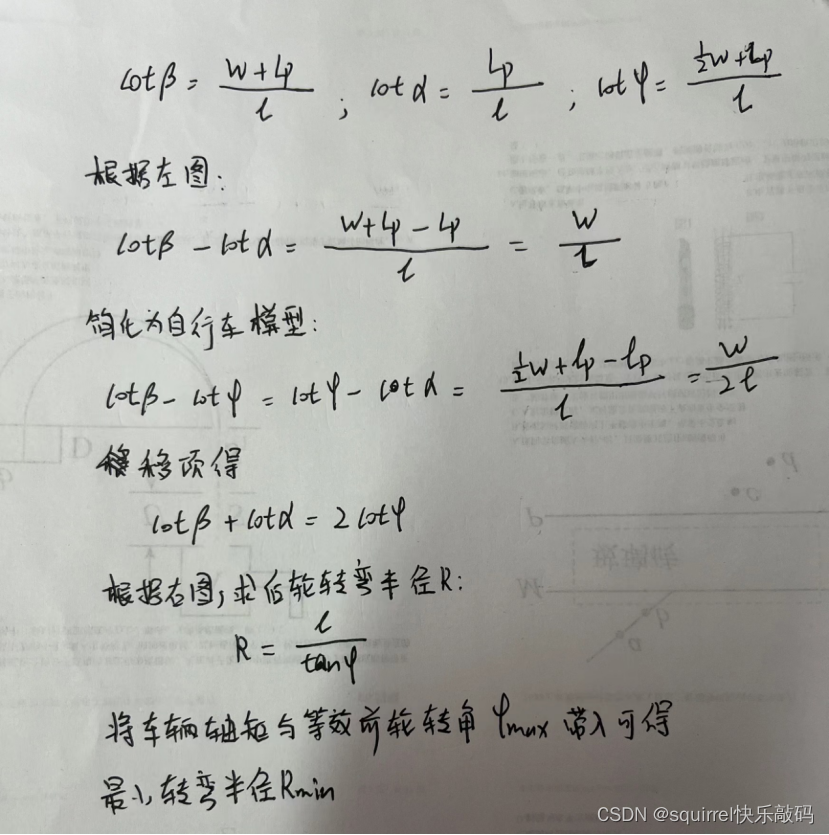 cotβ = (w+lp)/l ; cotα = lp/l ; cotφ = (½w+lp)/l
根据左图:
cotβ - cotα = (w+lp-lp)/l = w/l
简化为自行车模型:
cotβ - cotφ = cotφ - cotα = (½w+lp-lp)/l = w/2l
移项得
cotβ + cotα = 2cotφ
根据右图,求后轮转弯半径R:
R = l/tanφ
将车辆轴距与等效前轮转角φmax带入可得
最小转弯半径Rmin
CSDN @squirrel快乐敲码